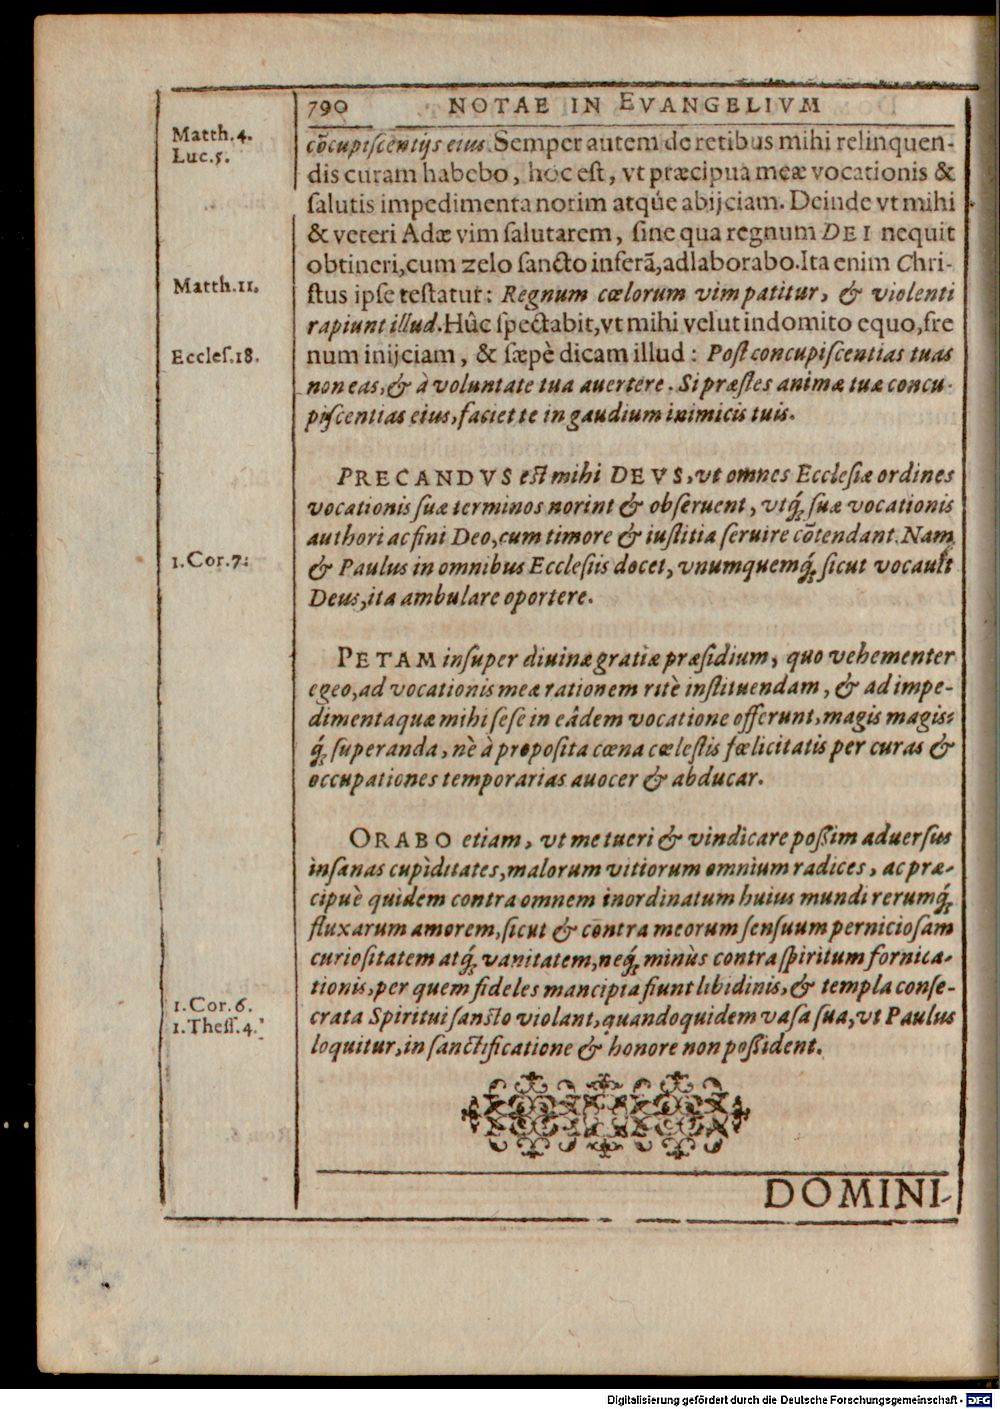 790 NOTAE IN EVANGELIVM
Matth. 4.
Luc. 5.
cõcupiſcentijs eius. Semper autem de retibus mihi relinquen-
dis curam habebo, hoc eſt, vt præcipua meæ vocationis &
ſalutis impedimenta norim atq́ue abijciam. Deinde vt mihi
& veteri Adæ vim ſalutarem, ſine qua regnum DEI nequit
obtineri, cum zelo ſancto inferã, adlaborabo. Ita enim Chri-
Matth. 11.
ſtus ipſe teſtatur: Regnum cœlorum vim patitur, & violenti
rapiunt illud. Hûc ſpectabit, vt mihi velut indomito equo, fre
Eccleſ. 18.
num inijciam, & ſæpè dicam illud: Poſt concupiſcentias tuas
non eas, & à voluntate tua auertere. Si præſtes animæ tuæ concu-
piſcentias eius, faciet te in gaudium inimicis tuis.
PRECANDVS eſt mihi DEVS, vt omnes Eccleſiæ ordines
vocationis ſuæ terminos norint & obſeruent, vtq́; ſuæ vocationis
authori ac fini Deo, cum timore & iuſtitia ſeruire cõtendant. Nam
1. Cor. 7.
& Paulus in omnibus Eccleſiis docet, vnumquemq́; ſicut vocauit
Deus, ita ambulare oportere.
PETAM inſuper diuinæ gratiæ præſidium, quo vehementer
egeo, ad vocationis meæ rationem ritè inſtituendam, & ad impe-
dimenta quæ mihi ſeſe in eâdem vocatione offerunt, magis magis-
q́; ſuperanda, nè à propoſita cœna cœleſtis fœlicitatis per curas &
occupationes temporarias auocer & abducar.
ORABO etiam, vt me tueri & vindicare poſſim aduerſus
inſanas cupiditates, malorum vitiorum omnium radices, ac præ-
cipuè quidem contra omnem inordinatum huius mundi rerumq́;
fluxarum amorem, ſicut & contra meorum ſenſuum pernicioſam
curioſitatem atq́; vanitatem, neq́; minùs contra ſpiritum fornica-
tionis, per quem fideles mancipia fiunt libidinis, & templa conſe-
1. Cor. 6.
1. Theſſ. 4.
crata Spiritui ſancto violant, quandoquidem vaſa ſua, vt Paulus
loquitur, in ſanctificatione & honore non poſſident.
DOMINI-
Digitalisierung gefördert durch die Deutsche Forschungsgemeinschaft - DFG